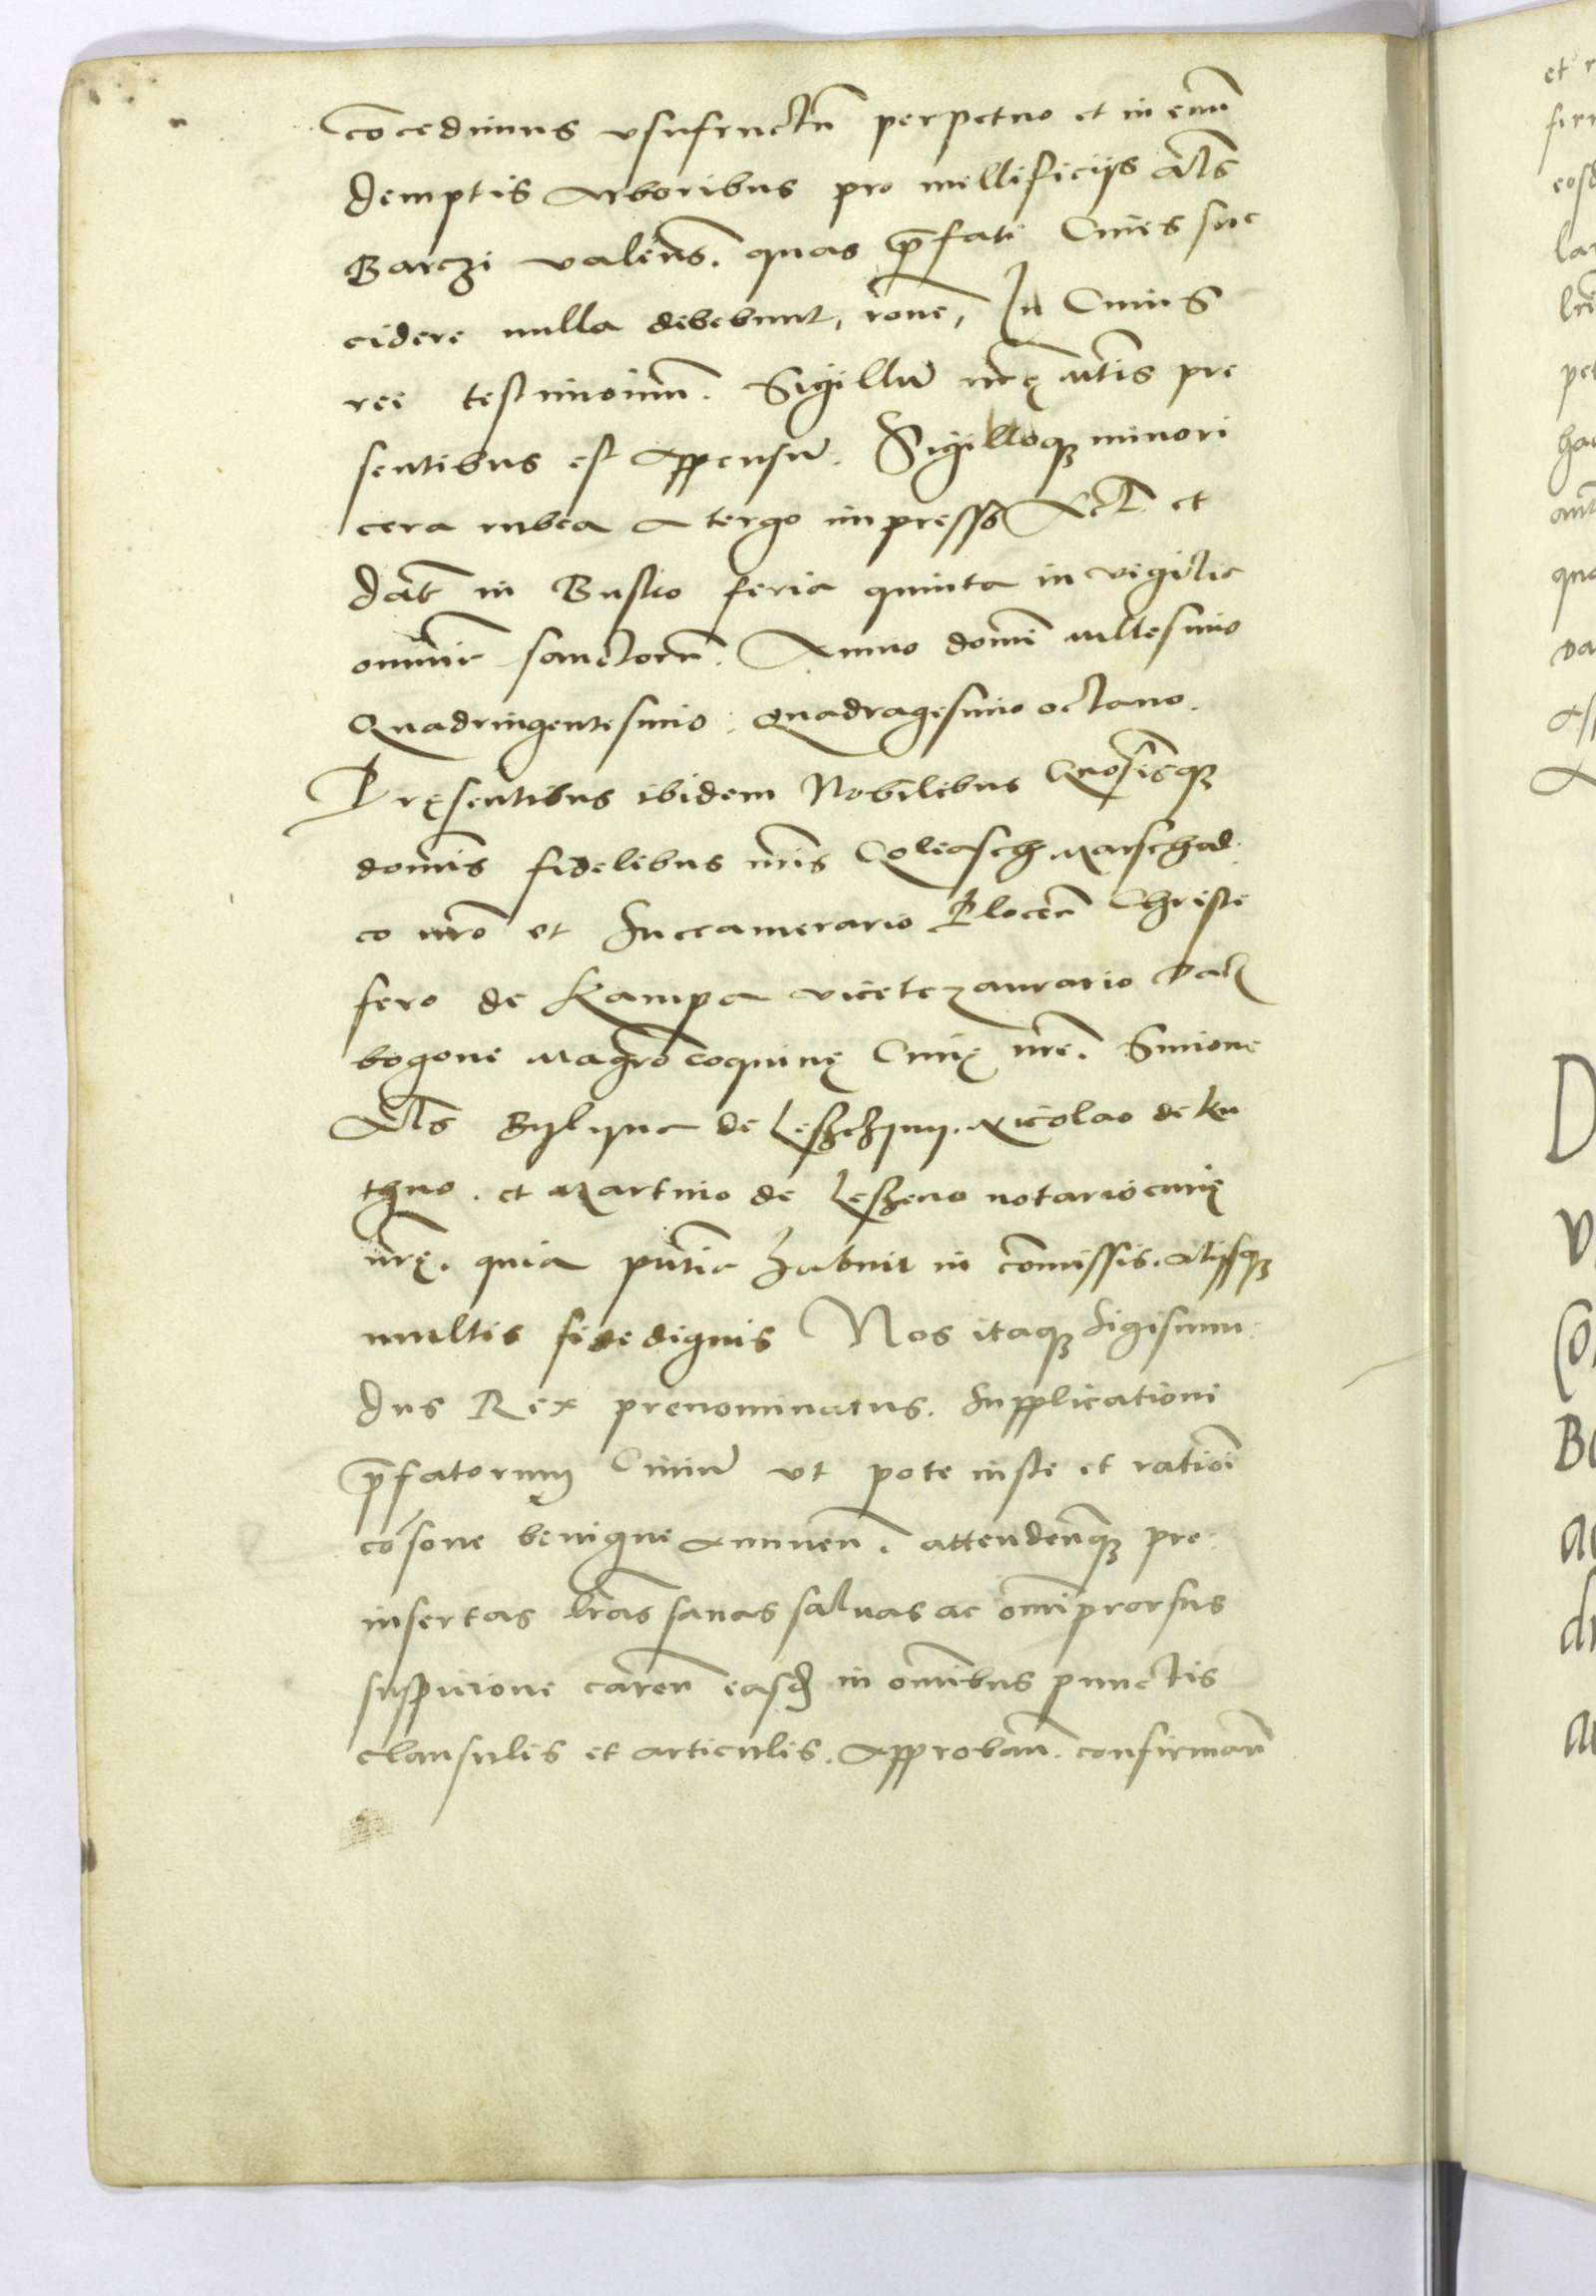 co͞cedimus vsufructu͞ perpetuo et in eum͞
demptis arboribus pro mellificijs al͞s
Barczi valen͞s. quas p͞fati Ciues suc
cidere nulla debebunt, ro͞ne, In Cuius
rei testimoium͞. Sigillu͞ nr͞ę mt͞is pre
sentibus est appensu͞. Sigilloqꝫ minori
cera rubea a tergo impresso Act͞ et
dat͞ in Busko feria quinta in vigilia
omniu͞ sanctoru͞. Anno domi͞ millesimo
Quadringentesimo. Quadragesimo octauo.
Pręsentibus ibidem Nobilibus Gn͞osisqꝫ
domi͞s fidelibus nr͞is Goleasch Marschal
co nr͞o et Succamerario Plocen͞ Christo
fero de Kampa vicetezaurario Dal
bogone Mag͞ro coquinę Curię nr͞e. Simone
al͞s Bylyna de Leszczyny. Nicolao de Ku
thno. et Martino de Leszeno notario curię
nr͞ę. qui pn͞tia habuit in co͞missis. alijsqꝫ
multis fidedignis Nos itaqꝫ Sigismun
dus Rex prenominatus. Supplicationi
p͞fatorum Ciuiu͞ vt pote iuste et ratioi͞
co͞sone benigne annuen͞. attenden͞qꝫ pre
insertas lr͞as sanas saluas ac omi͞ prorsus
suspicione caren͞ easd͞ in omi͞bus punctis
clausulis et articulis. approban͞. confirman͞